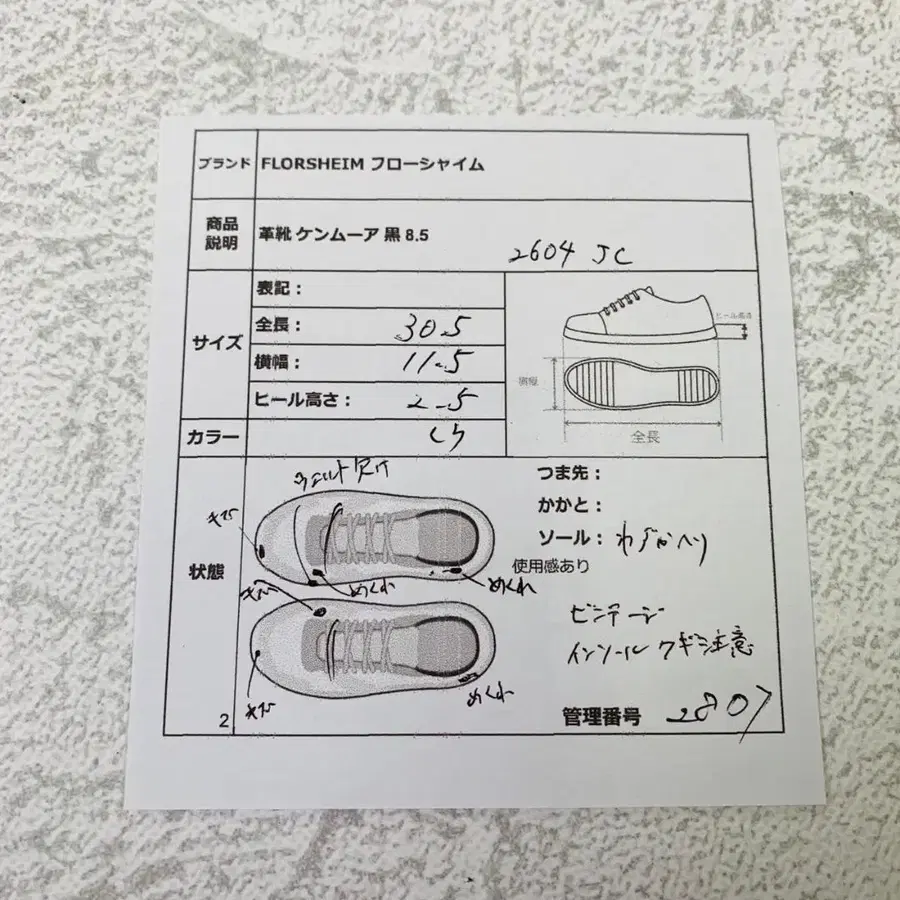 ブランド FLORSHEIM フローシャイム
商品説明 革靴 ケンムーア 黒 8.5
2604 JC
サイズ
表記：
全長： 30.5
横幅： 11.5
ヒール高さ： 2.5
ヒール高さ
横幅
全長
カラー くろ
状態
ウェルト欠け
キズ
キズ
めくれ
めくれ
キズ
めくれ
つま先：
かかと：
ソール： わずかヘリ
使用感あり
ビンテージ
インソール クギ注意
管理番号 2807
2